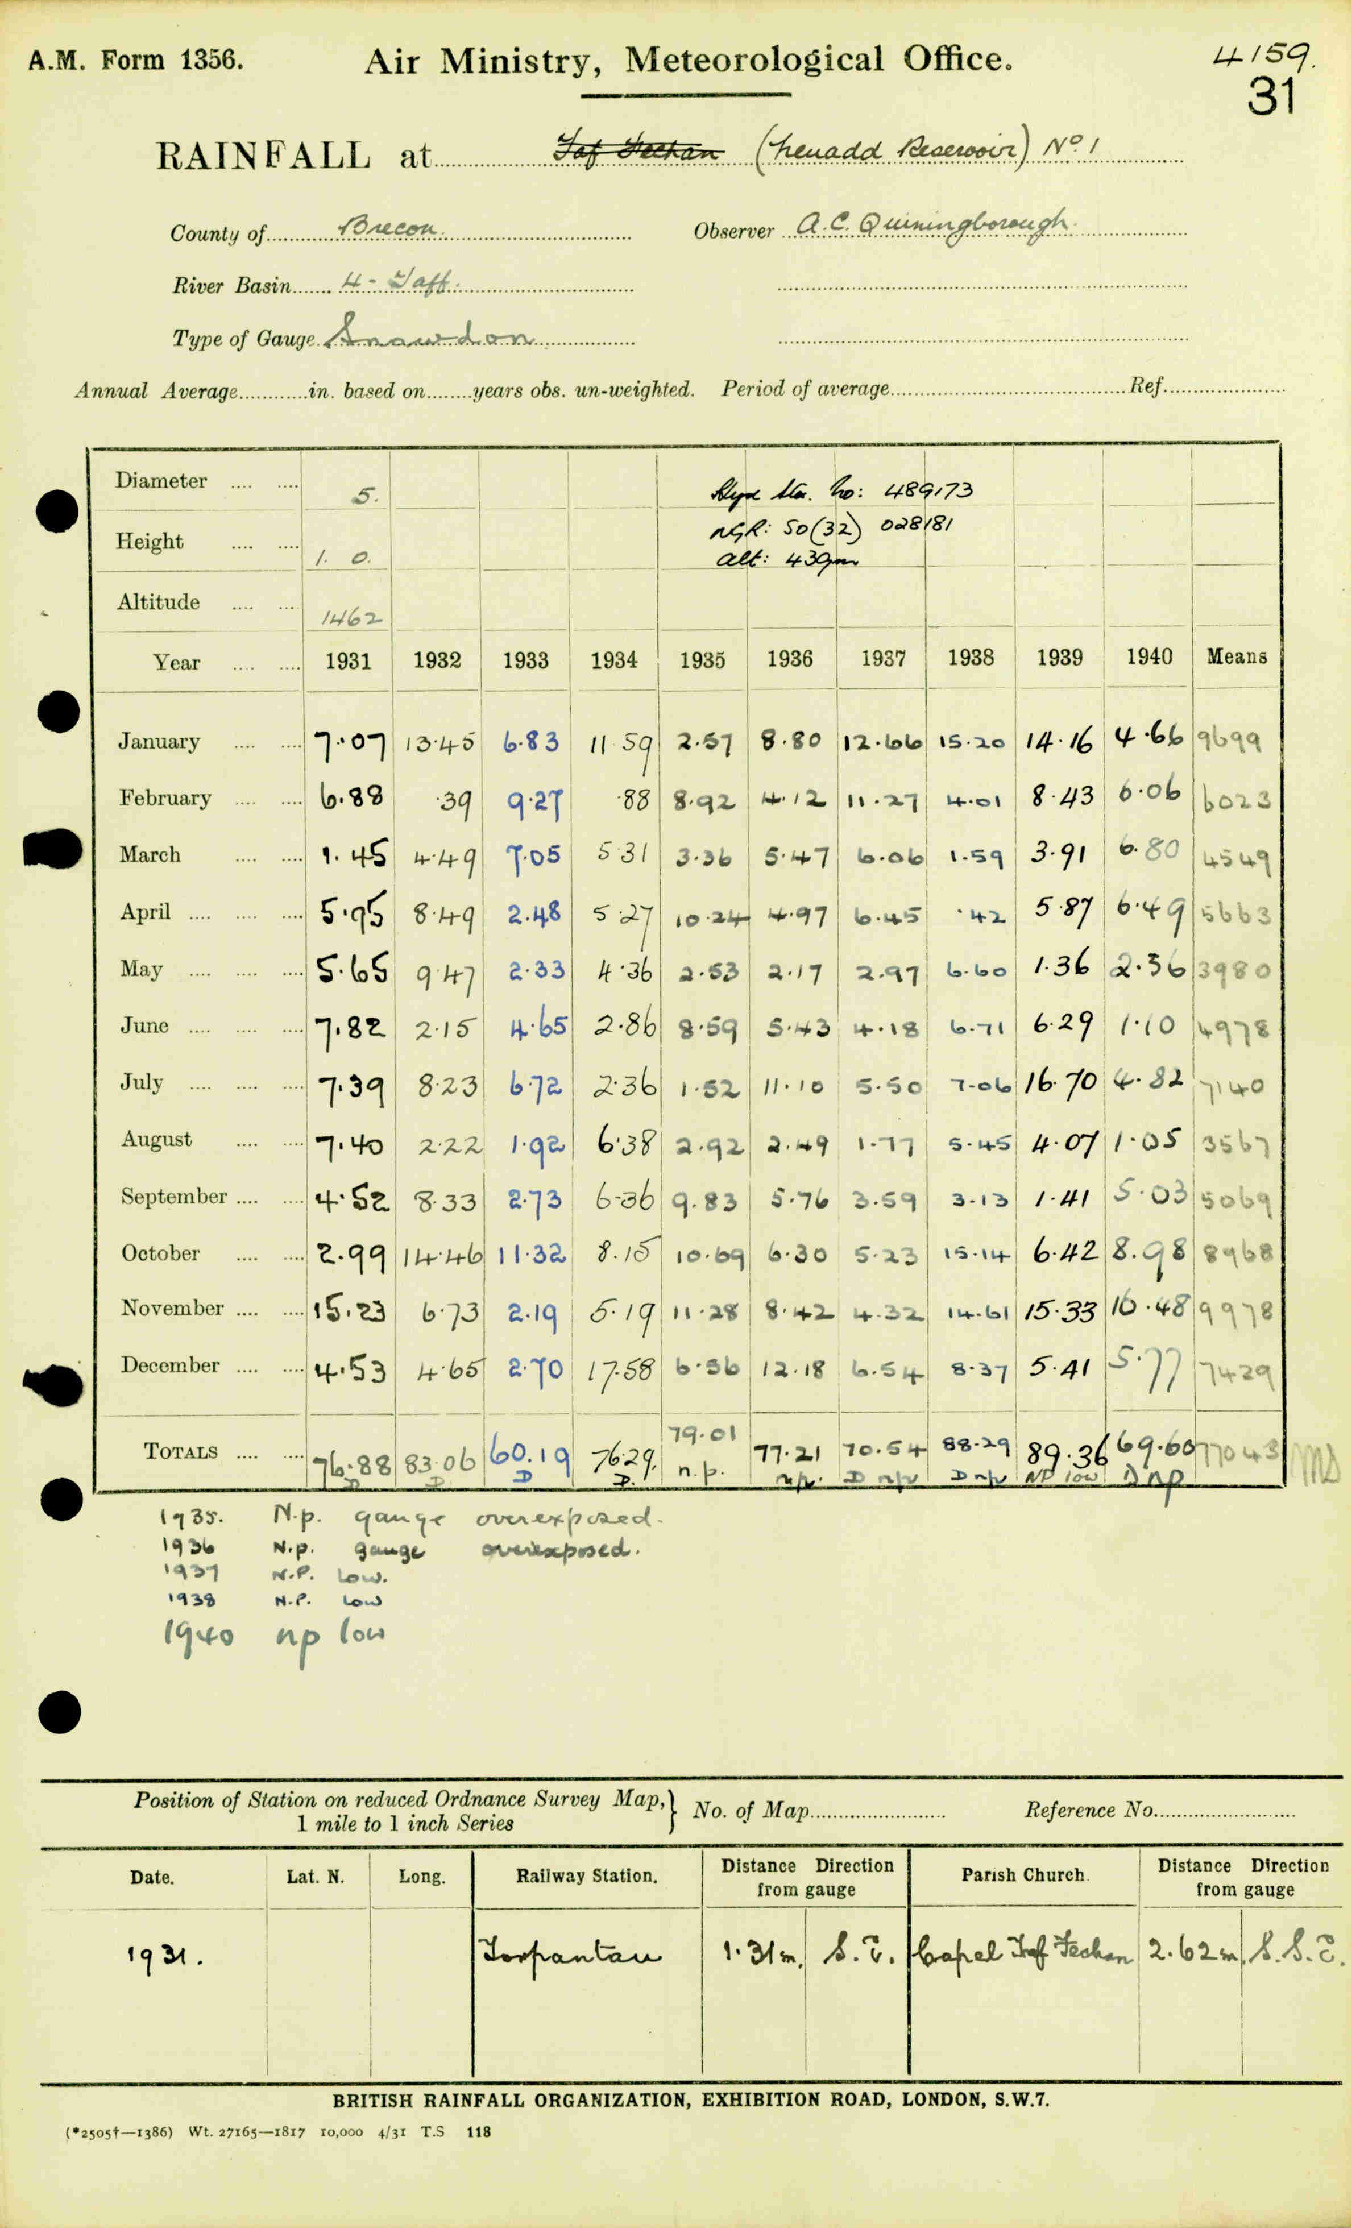 A.M. Form 1356. Air Ministry, Meteorological Office. 4159.
31
RAINFALL at Taf Fechan (Neuadd Reservoir) No 1
County of Brecon. Observer A.C. Quiningborough.
River Basin 4 - Taff.
Type of Gauge Snowdon
Annual Average in. based on years obs. un-weighted. Period of average Ref.
Diameter 5.
Hyd Stn. No: 489173
NGR: SO(32) 028181
Height 1. 0.
Alt: 439m
Altitude 1462
Year 1931 1932 1933 1934 1935 1936 1937 1938 1939 1940 Means
January 7.07 13.45 6.83 11.59 2.57 8.80 12.66 15.20 14.16 4.66 9699
February 6.88 .39 9.27 .88 8.92 4.12 11.27 4.01 8.43 6.06 6023
March 1.45 4.49 7.05 5.31 3.36 5.47 6.06 1.59 3.91 6.80 4549
April 5.95 8.49 2.48 5.27 10.24 4.97 6.45 .42 5.87 6.49 5663
May 5.65 9.47 2.33 4.36 2.53 2.17 2.97 6.60 1.36 2.36 3980
June 7.82 2.15 4.65 2.86 8.59 5.43 4.18 6.71 6.29 1.10 4978
July 7.39 8.23 6.72 2.36 1.52 11.10 5.50 7.06 16.70 4.82 7140
August 7.40 2.22 1.92 6.38 2.92 2.49 1.77 5.45 4.07 1.05 3567
September 4.52 8.33 2.73 6.36 9.83 5.76 3.59 3.13 1.41 5.03 5069
October 2.99 14.46 11.32 8.15 10.69 6.30 5.23 15.14 6.42 8.98 8968
November 15.23 6.73 2.19 5.19 11.28 8.42 4.32 14.61 15.33 16.48 9978
December 4.53 4.65 2.70 17.58 6.56 12.18 6.54 8.37 5.41 5.77 7429
TOTALS 76.88 83.06 60.19 76.29. 79.01 77.21 70.54 88.29 89.36 69.60 77043 MS
D D D D. n.p. n.p. D np D np NP low D np
1935. N.p. gauge overexposed.
1936 N.p. gauge overexposed.
1937 N.P. Low.
1938 N.P. Low
1940 np low
Position of Station on reduced Ordnance Survey Map, No. of Map Reference No.
1 mile to 1 inch Series
Date. Lat. N. Long. Railway Station. Distance Direction from gauge Parish Church. Distance Direction from gauge
1931. Torpantau 1.31m. S.E. Capel Taf Fechan 2.62m. S.S.E.
BRITISH RAINFALL ORGANIZATION, EXHIBITION ROAD, LONDON, S.W.7.
(*2505†—1386) Wt. 27165—1817 10,000 4/31 T.S 118